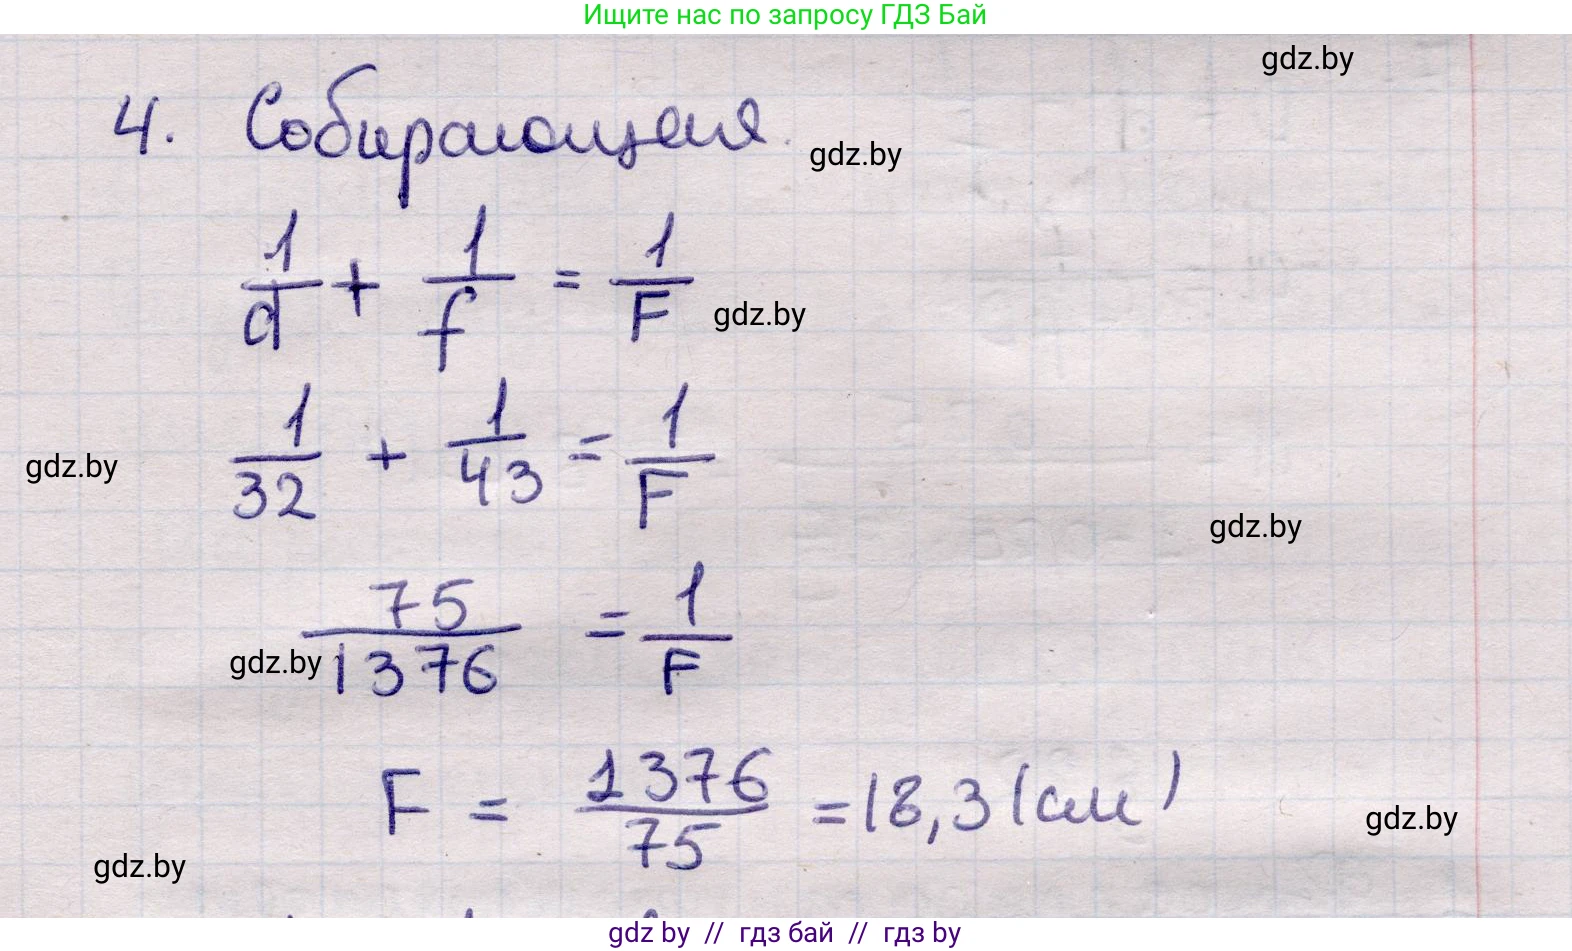 Ищите нас по запросу ГДЗ Бай
gdz.by
4. Собирающая
gdz.by
1/d + 1/f = 1/F
gdz.by
1/32 + 1/43 = 1/F
gdz.by
gdz.by
75/1376 = 1/F
gdz.by
F = 1376/75 = 18,3 (см)
gdz.by
gdz.by
gdz by // гдз бай // гдз by